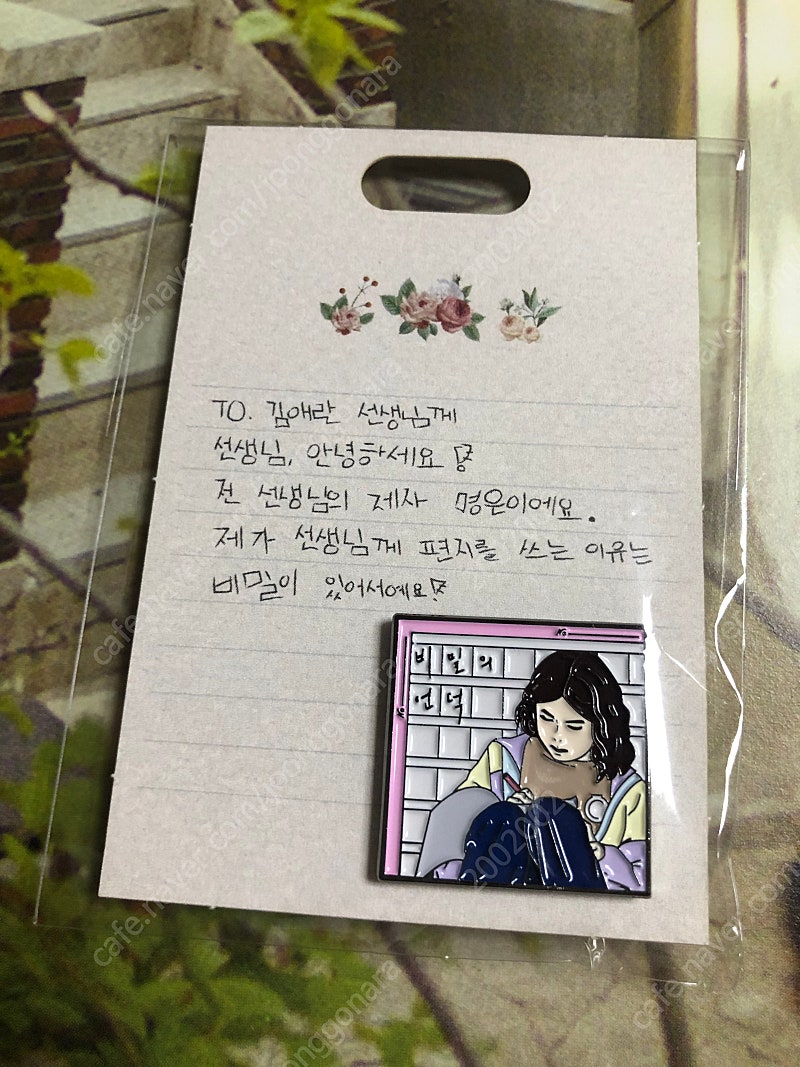 TO. 김애란 선생님께
선생님, 안녕하세요!
전 선생님의 제자 명은이에요.
제가 선생님께 편지를 쓰는 이유는
비밀이 있어서예요!
NG
NG
비밀의
언덕
cafe.naver.com/joonggonara
2002002